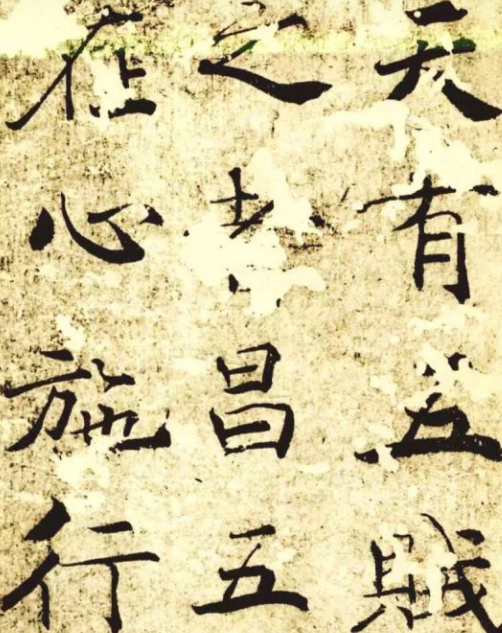 天有五賊
之者昌五
在心施行